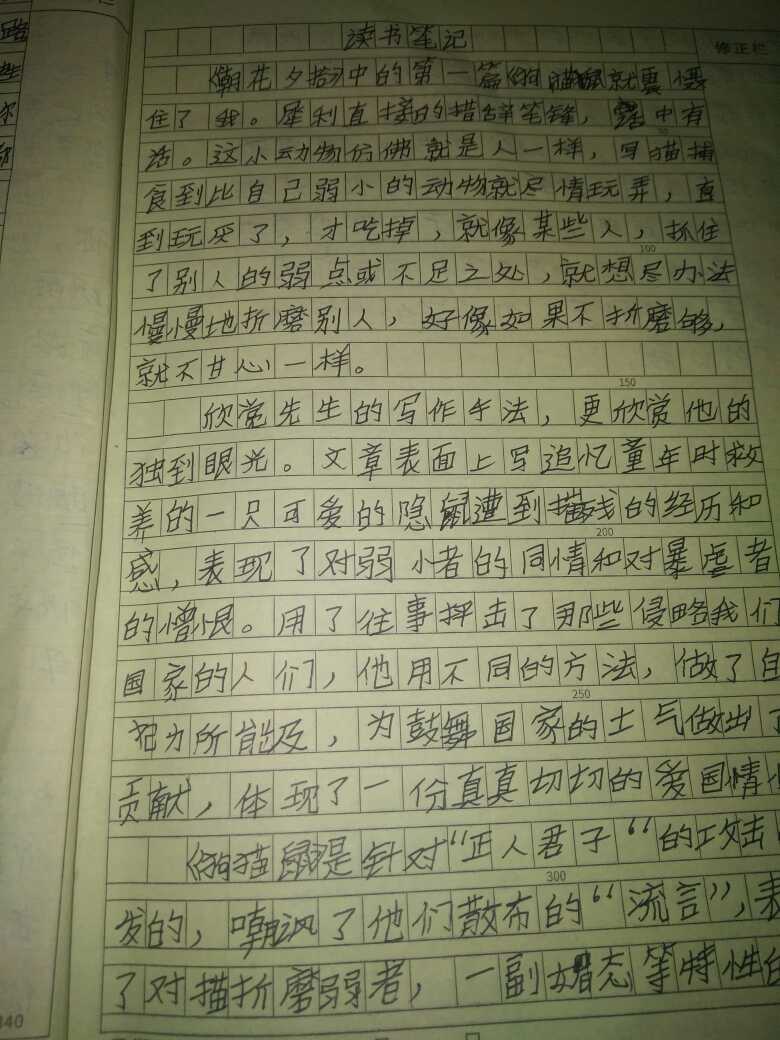 路
生
修正栏
读书笔记
《朝花夕拾》中的第一篇《狗猫鼠》就震慑
住了我。犀利直接的措辞笔锋，話中有
话。这小动物仿佛就是人一样，写猫捕
食到比自己弱小的动物就尽情玩弄，直
到玩厌了，才吃掉，就像某些人，抓住
100
了别人的弱点或不足之处，就想尽办法
慢慢地折磨别人，好像如果不折磨够，
就不甘心一样。
150
欣赏先生的写作手法，更欣赏他的
独到眼光。文章表面上写追忆童年时救
养的一只可爱的隐鼠遭到描残的经历和
200
感，表现了对弱小者的同情和对暴虐者
的憎恨。用了往事抨击了那些侵略我们
国家的人们，他用不同的方法，做了自
250
犯力所能及，为鼓舞国家的士气做出了
贡献，体现了一份真真切切的爱国情
《狗猫鼠》是针对“正人君子“的攻击
300
发的，嘲讽了他们散布的“流言”，表
了对描折磨弱者，一副媚态等特性的
340